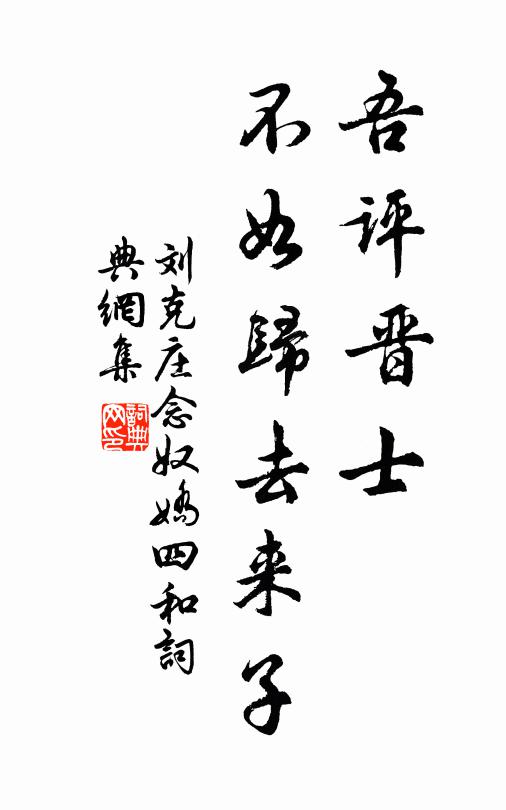 吾评晋士
不如歸去来子
刘克庄念奴嬌四和詞
典網集
詞典网印